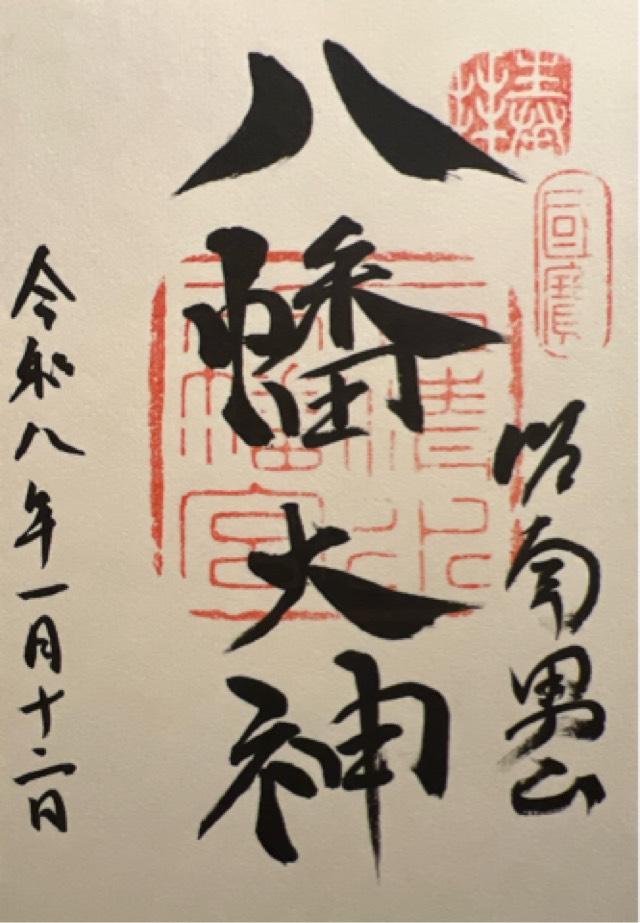 國寶
洛南男山
八幡大神
石清水
八幡宮
令和八年一月十二日